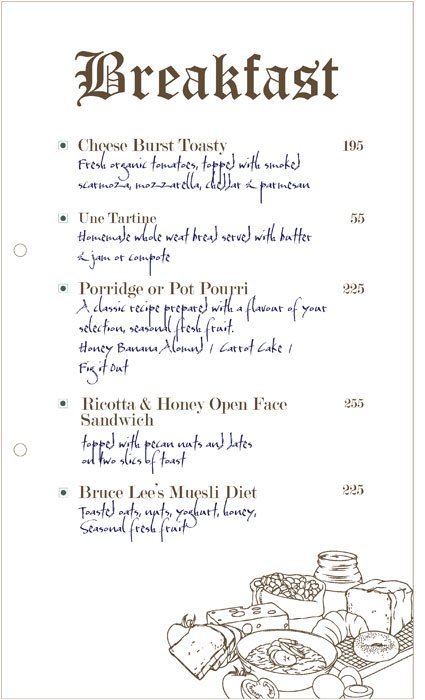 Breakfast
Cheese Burst Toasty 195
Fresh organic tomatoes, topped with smoked
scarmoza, mozzarella, cheddar & parmesan
Une Tartine 55
Homemade whole weat bread served with butter
& jam or compote
Porridge or Pot Pourri 225
A classic recipe prepared with a flavour of your
selection, seasonal fresh fruit.
Honey Banana Alomnd / Carrot Cake /
Fig it Out
Ricotta & Honey Open Face 255
Sandwich
topped with pecan nuts and dates
on two slics of toast
Bruce Lee's Muesli Diet 225
Toasted oats, nuts, yoghurt, honey,
Seasonal fresh fruit